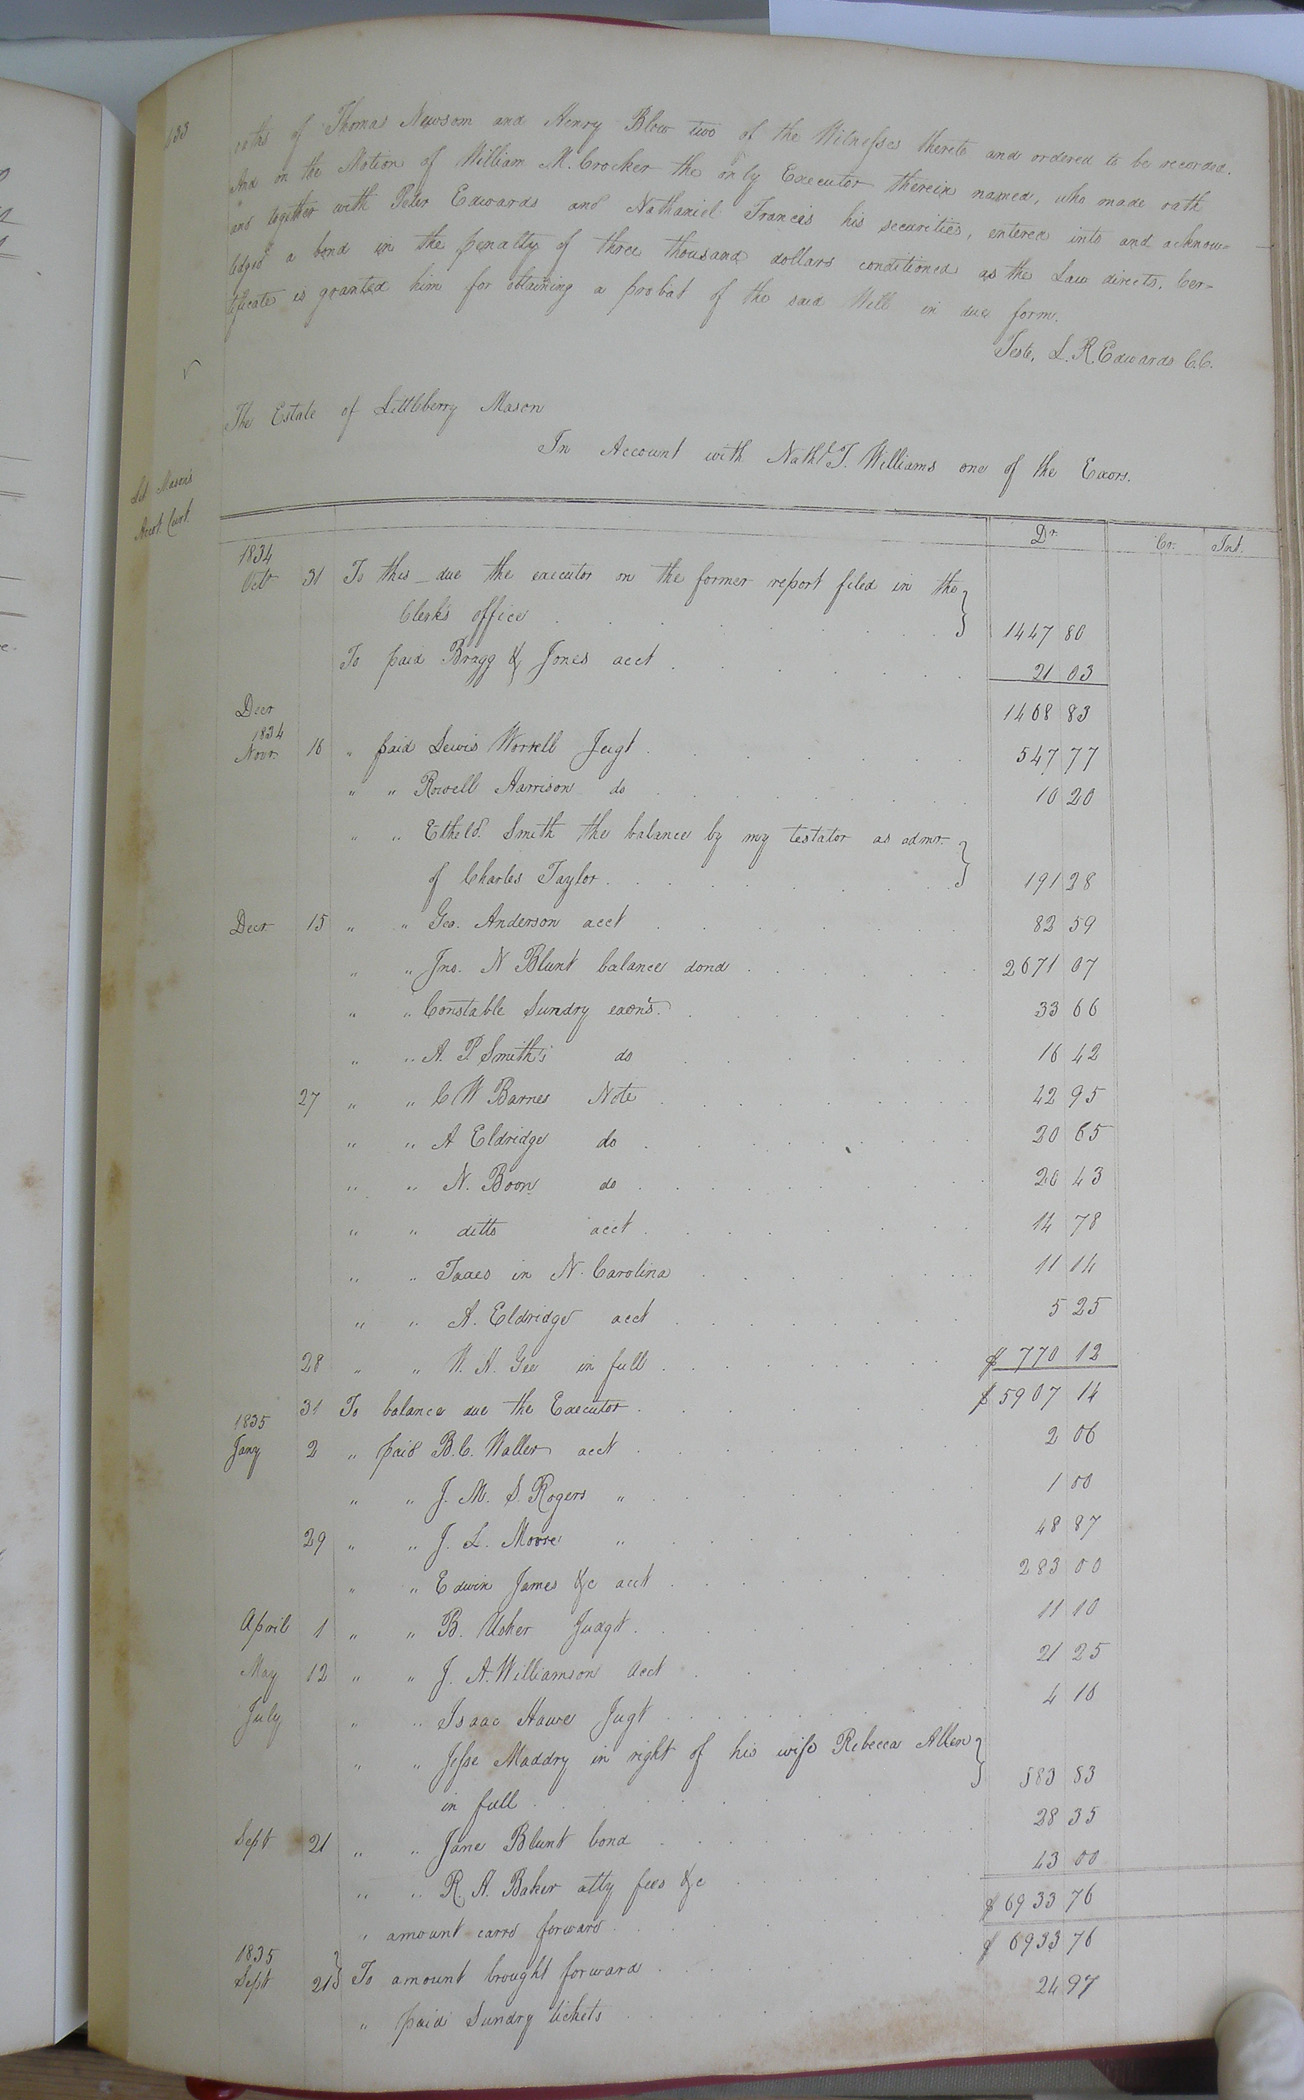 133
oaths of Thomas Newsom and Henry Blow two of the Witnesses thereto and ordered to be recorded.
And on the Motion of William M. Crocker the only Executor therein named, who made oath
and together with Peter Edwards and Nathaniel Francis his securities, entered into and acknow=
ledged a bond in the penalty of three thousand dollars conditioned as the Law directs, Cer=
tificate is granted him for obtaining a probat of the said Will in due form.
Teste, L. R. Edwards C.C.
The Estate of Littleberry Mason
In Account with Nathl. T. Williams one of the Exors.
Lit Mason's
Acct Curt
Dr. Cr. Int.
1834
Octr 31 To this due the executor on the former report filed in the
Clerk's office 1447 80
To paid Bragg & Jones acct 21 03
Decr 1468 83
1834
Novr. 16 " paid Lewis Worrell Jugt 547 77
" " Rowell Harrison do 10 20
" " Etheld. Smith the balance by my testator as admr.
of Charles Taylor 191 28
Decr 15 " " Geo. Anderson acct 82 59
" " Jno. N Blunt balance dond 2671 07
" " Constable Sundry exons. 33 66
" " A. P. Smith's do 16 42
27 " " C W Barnes Note 42 95
" " A Eldridge do 20 65
" " N. Boon do 20 43
" " ditto acct 14 78
" " Taxes in N. Carolina 11 14
" " A. Eldridge acct 5 25
28 " " W. H. Gee in full $ 770 12
31 To balance due the Executor $ 5907 14
1835
Jany 2 " paid B. C. Waller acct 2 06
" " J. M. S. Rogers " 1 00
29 " " J. L. Moore " 48 87
" " Edwin James &c acct 283 00
April 1 " " B. Usher Judgt 11 10
May 12 " " J. A. Williamson acct 21 25
July " " Isaac Hawe Jugt 4 16
" " Jesse Maddry in right of his wife Rebecca Allen
in full 583 83
Sept 21 " " Jane Blunt bond 28 35
" " R. A. Baker atty fees &c 43 00
" amount carrd forward $ 6933 76
1835
Sept 21 To amount brought forward $ 6933 76
" paid Sundry tickets 24 97